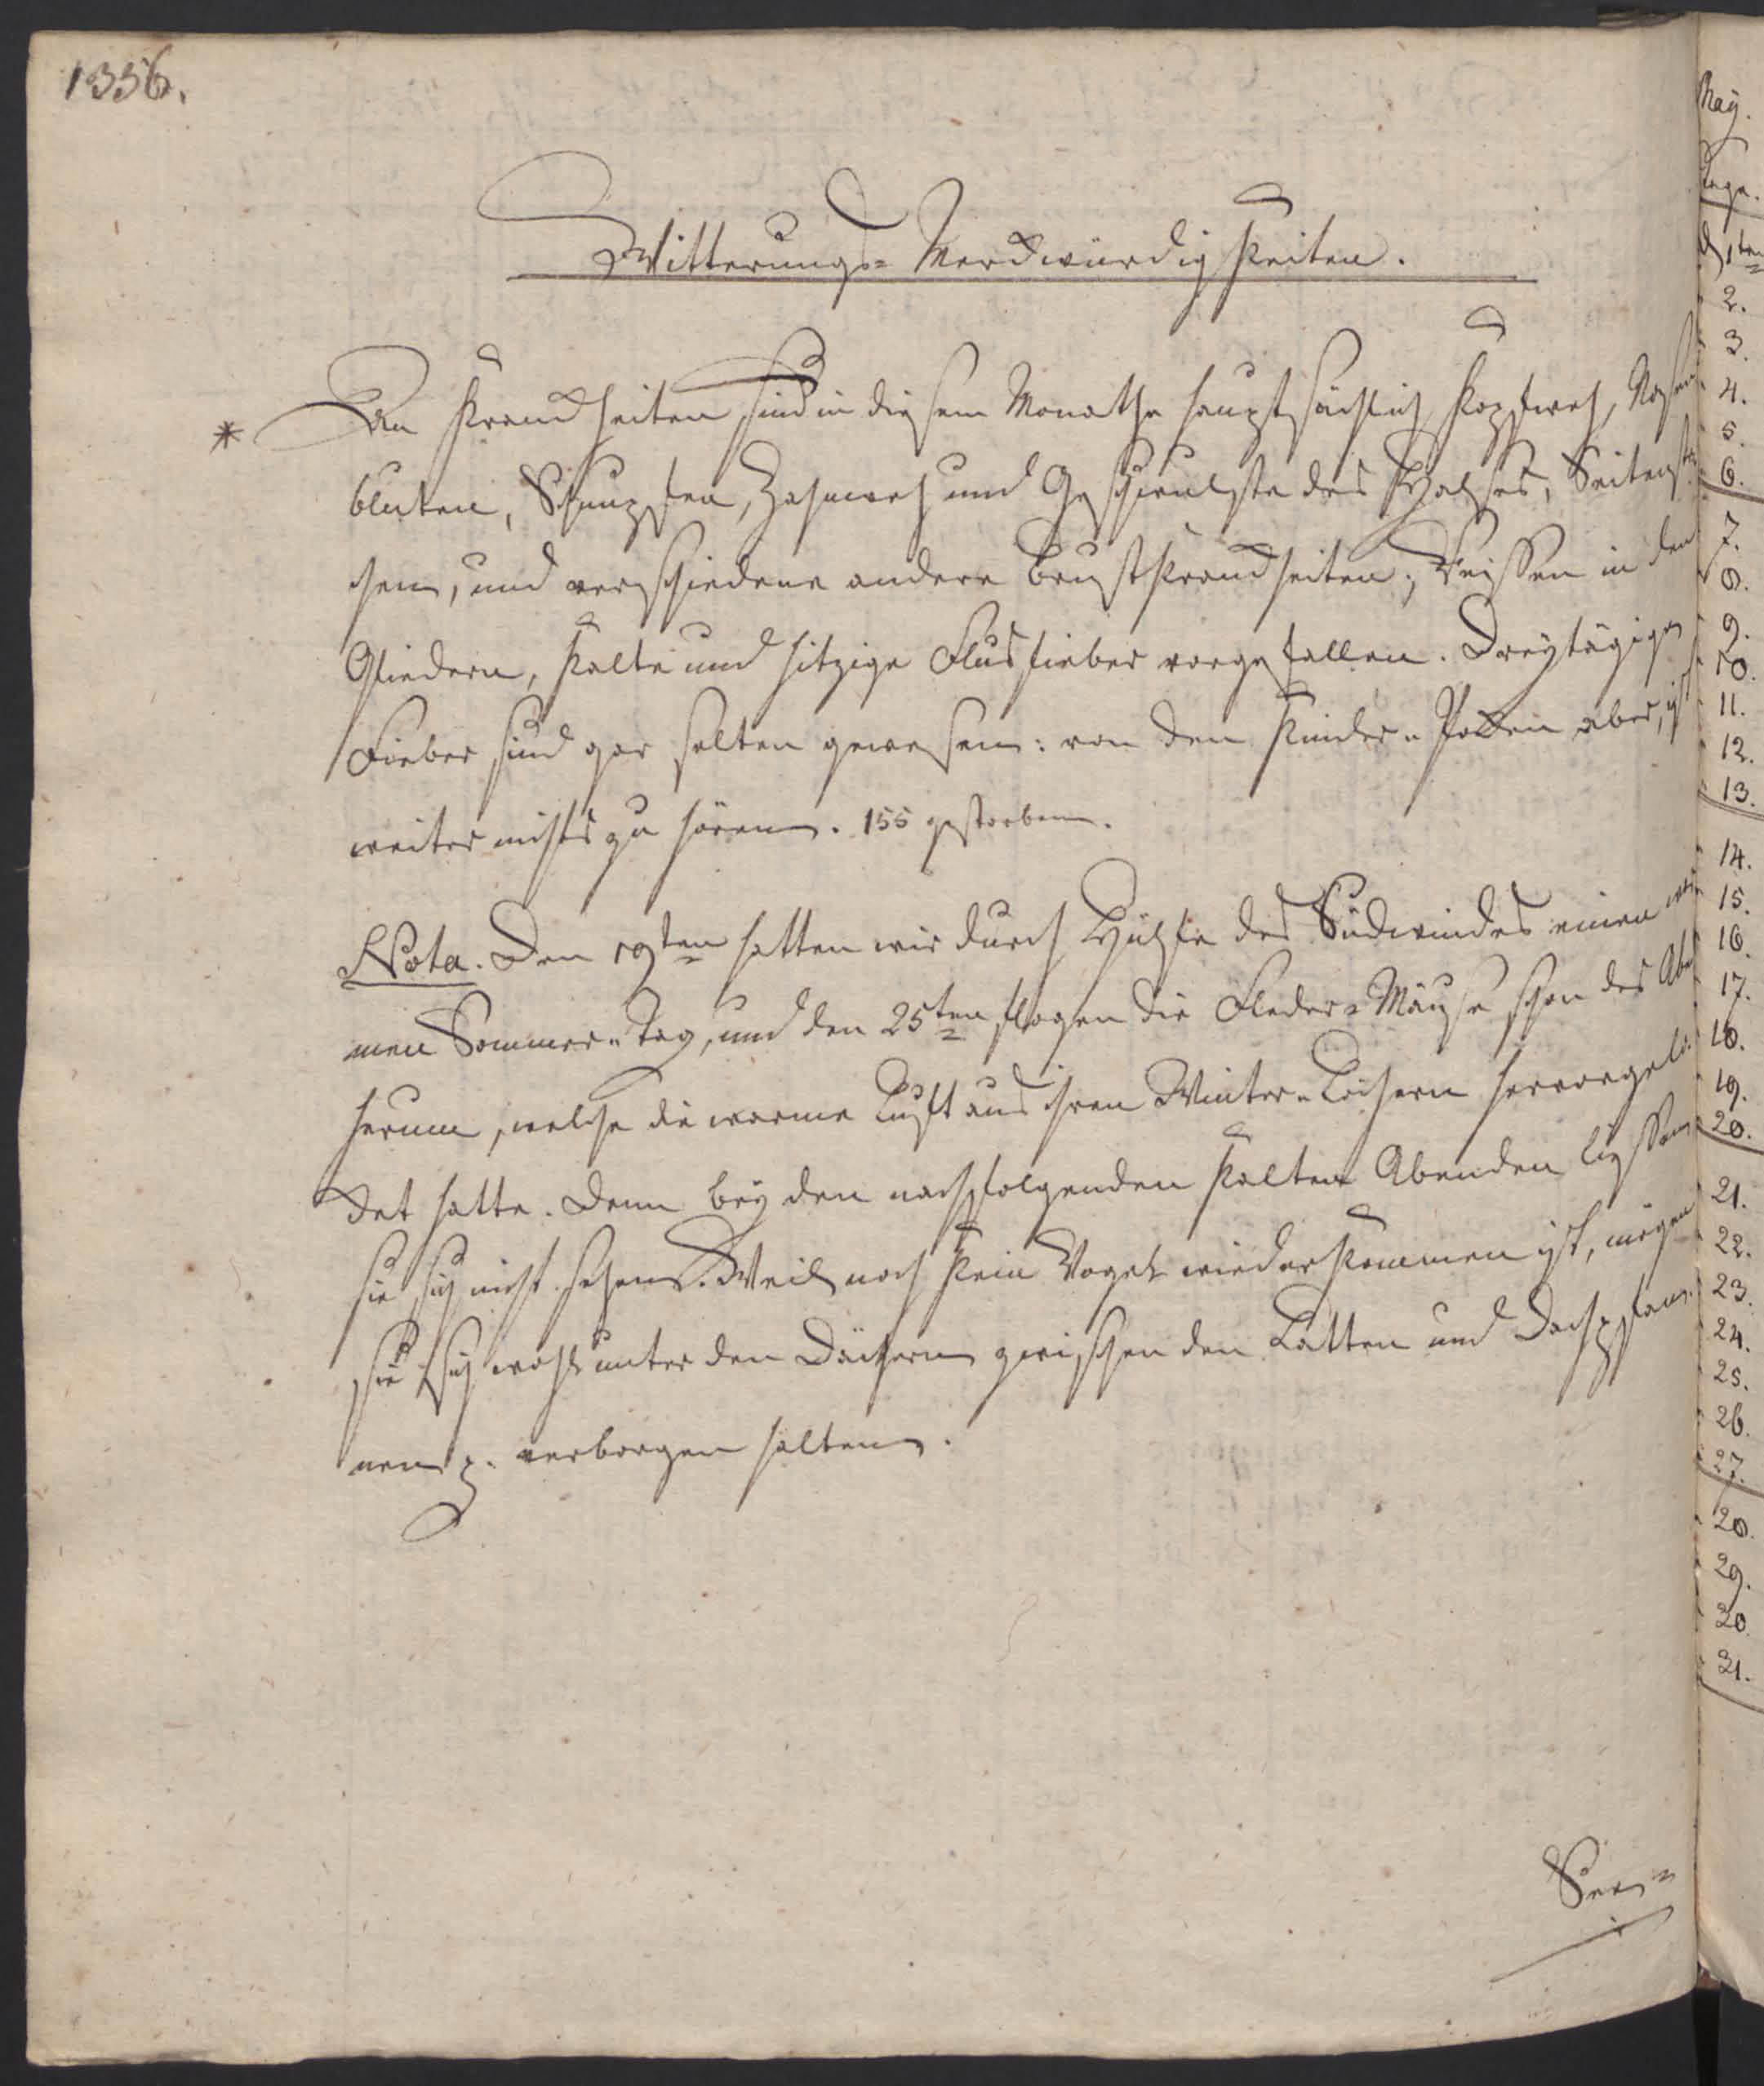 1356.
Witterungs= Merckwürdigkeiten.
* An Kranckheiten sind in diesem Monathe hauptsächlich Kopfweh, Nasen
bluten, Schnupfen, Zahnweh und Geschwulste des Halses, Seitenste
chen, und verschiedene andere Brustkranckheiten, Reissen in den
Gliedern, kalte und hitzige Flusfieber vorgefallen. Dreytägige
Fieber sind gar selten gewesen: von den Kinder= Pocken aber, ist
weiter nichts zu hören. 155 gestorben.
Nota. Den 19ten hatten wir durch Hülfe des Südwindes einen
men Sommer= Tag, und den 25ten flogen die Fleder= Mäuse schon des Ab
herum, welche die warme Luft aus ihren Winter= Löchern hervorgelo
cket hatte. Denn bey den nachfolgenden kalten Abenden liessen
sie sich nicht sehen. Weil noch kein Vogel wiederkommen ist, mögen
sie sich wohl unter den Dächern zwischen den Latten und Dachpfan
nen verborgen halten.
May.
Tage.
d 1ten
2.
3.
4.
5.
6.
7.
8.
9.
10.
11.
12.
13.
14.
15.
16.
17.
18.
19.
20.
21.
22.
23.
24.
25.
26.
27.
28.
29.
30
31.